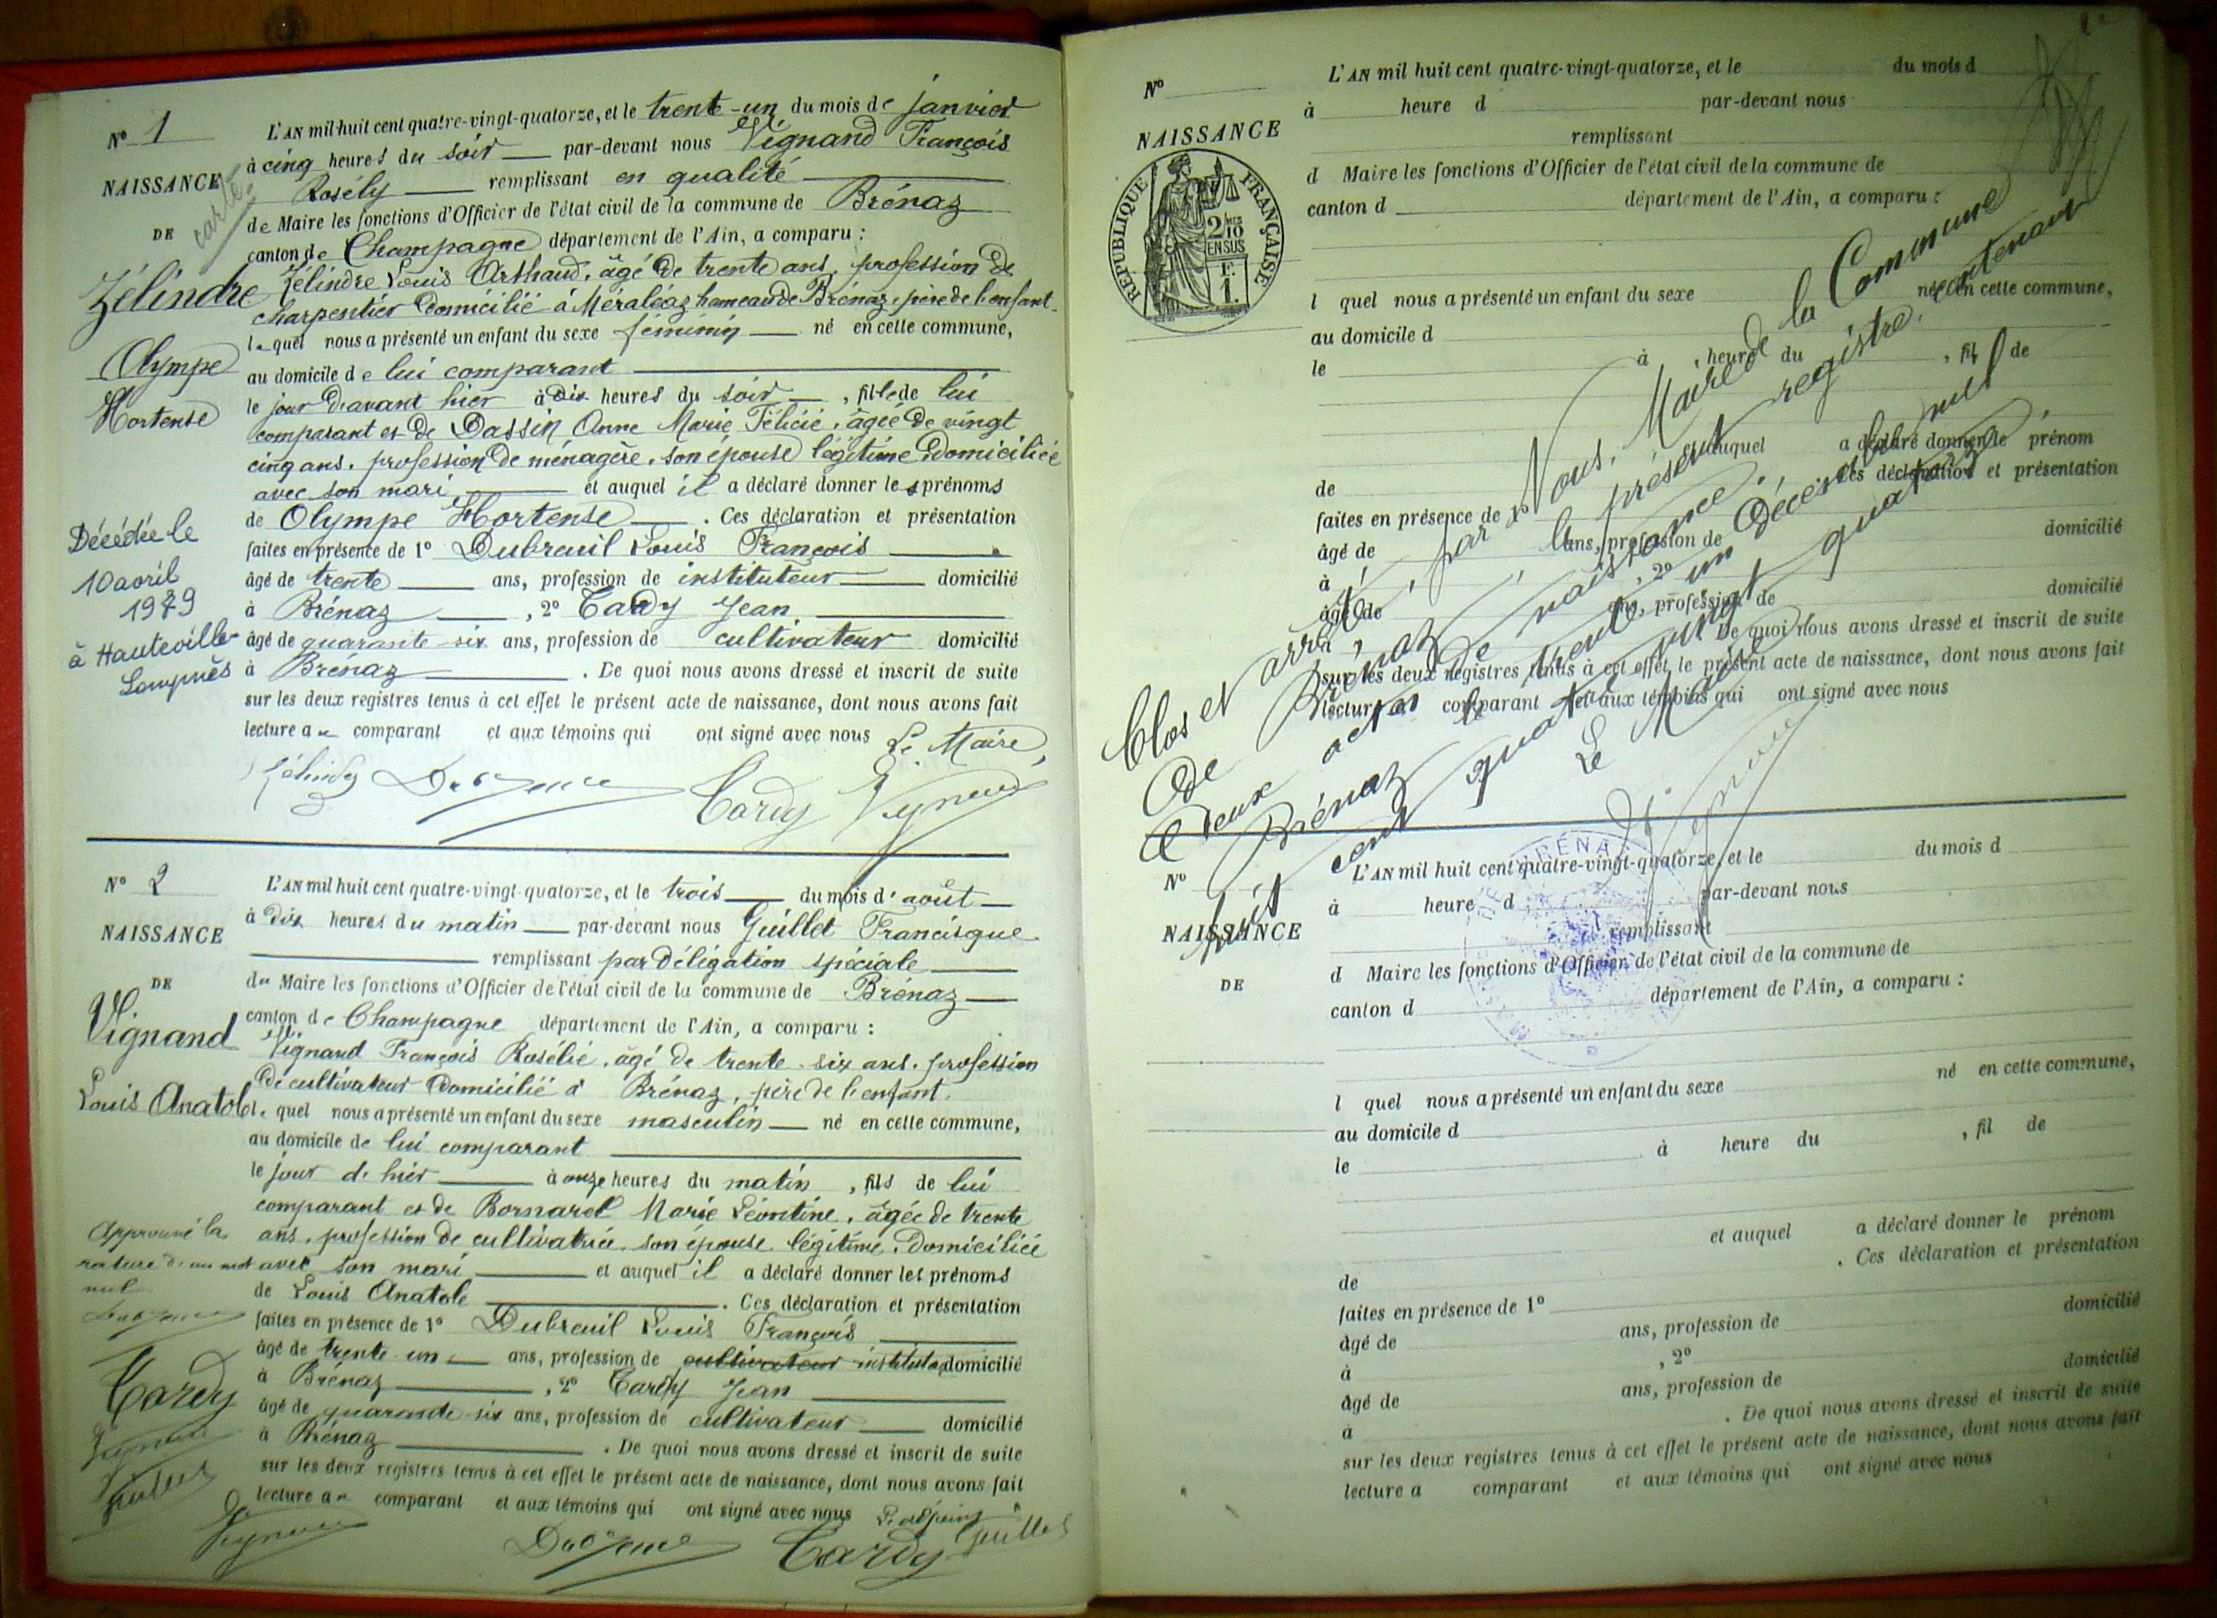 N° 1
NAISSANCE
DE
Zélindre
Olympe
Hortense
carte
Décédée le
10 avril
1979
à Hauteville
Lompnès
L'AN mil huit cent quatre-vingt-quatorze, et le trente-un du mois de janvier
à cinq heures du soir par-devant nous Vignand François
Rosély remplissant en qualité
de Maire les fonctions d'Officier de l'état civil de la commune de Brénaz
canton de Champagne département de l'Ain, a comparu :
Zélindre Louis Arthaud, âgé de trente ans, profession de
charpentier domicilié à Méraléaz hameau de Brénaz, père de l'enfant.
lequel nous a présenté un enfant du sexe féminin né en cette commune,
au domicile de lui comparant
le jour d'avant hier à dix heures du soir, fille de lui
comparant et de Dassin Anne Marie Félicie, âgée de vingt
cinq ans, profession de ménagère, son épouse légitime domiciliée
avec son mari et auquel il a déclaré donner les prénoms
de Olympe Hortense. Ces déclaration et présentation
faites en présence de 1° Dubreuil Louis François
âgé de trente ans, profession de instituteur domicilié
à Brénaz, 2° Tardy Jean
âgé de quarante-six ans, profession de cultivateur domicilié
à Brénaz. De quoi nous avons dressé et inscrit de suite
sur les deux registres tenus à cet effet le présent acte de naissance, dont nous avons fait
lecture au comparant et aux témoins qui ont signé avec nous Le Maire,
Zélindre Dubreuil Tardy Vignand
N° 2
NAISSANCE
DE
Vignand
Louis Anatole
L'AN mil huit cent quatre-vingt-quatorze, et le trois du mois d'août
à dix heures du matin par-devant nous Guillet Francisque
remplissant par délégation spéciale
du Maire les fonctions d'Officier de l'état civil de la commune de Brénaz
canton de Champagne département de l'Ain, a comparu :
Vignand François Rosélié, âgé de trente-six ans, profession
de cultivateur domicilié à Brénaz, père de l'enfant.
lequel nous a présenté un enfant du sexe masculin né en cette commune,
au domicile de lui comparant
le jour d'hier à onze heures du matin, fils de lui
comparant et de Bornarel Marie Léontine, âgée de trente
ans, profession de cultivatrice son épouse légitime, domiciliée
avec son mari et auquel il a déclaré donner les prénoms
de Louis Anatole. Ces déclaration et présentation
faites en présence de 1° Dubreuil Louis François
âgé de trente-un ans, profession de cultivateur instituteur domicilié
à Brénaz, 2° Tardy Jean
âgé de quarante-six ans, profession de cultivateur domicilié
à Brénaz. De quoi nous avons dressé et inscrit de suite
sur les deux registres tenus à cet effet le présent acte de naissance, dont nous avons fait
lecture au comparant et aux témoins qui ont signé avec nous L'adjoint
Vignand Dubreuil Tardy Guillet
Approuvé la
rature d'un mot
nul
Dubreuil
Tardy
Vignand
Guillet
N°
NAISSANCE
RÉPUBLIQUE FRANÇAISE
2/10 EN SUS
F.
1.
L'AN mil huit cent quatre-vingt-quatorze, et le du mois d
à heure d par-devant nous
remplissant
d Maire les fonctions d'Officier de l'état civil de la commune de
canton d département de l'Ain, a comparu :
l quel nous a présenté un enfant du sexe né en cette commune,
au domicile d
le à heure du , fil de
et auquel a déclaré donner le prénom
de . Ces déclaration et présentation
faites en présence de 1°
âgé de ans, profession de domicilié
à , 2°
âgé de ans, profession de domicilié
à . De quoi nous avons dressé et inscrit de suite
sur les deux registres tenus à cet effet le présent acte de naissance, dont nous avons fait
lecture a comparant et aux témoins qui ont signé avec nous
Clos et arrêté, par Nous, Maire de la Commune
de Brénaz, le présent registre, contenant
deux actes de naissance.
Brénaz le trente-un Décembre mil
huit cent quatre vingt quatorze.
Le Maire
Vignand
N°
NAISSANCE
DE
L'AN mil huit cent quatre-vingt-quatorze, et le du mois d
à heure d par-devant nous
remplissant
d Maire les fonctions d'Officier de l'état civil de la commune de
canton d département de l'Ain, a comparu :
l quel nous a présenté un enfant du sexe né en cette commune,
au domicile d
le à heure du , fil de
et auquel a déclaré donner le prénom
de . Ces déclaration et présentation
faites en présence de 1°
âgé de ans, profession de domicilié
à , 2°
âgé de ans, profession de domicilié
à . De quoi nous avons dressé et inscrit de suite
sur les deux registres tenus à cet effet le présent acte de naissance, dont nous avons fait
lecture a comparant et aux témoins qui ont signé avec nous